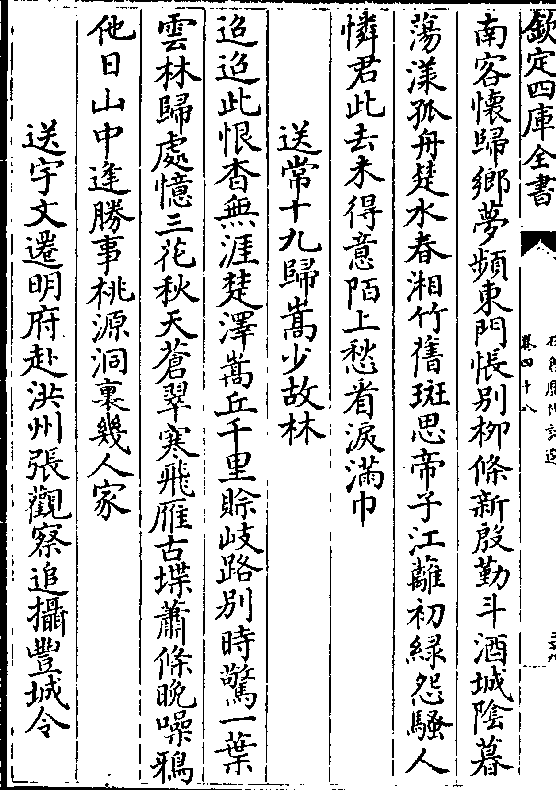 欽定四庫全書
卷四十八
南客懷歸鄉夢頻東門悵別柳條新殷勤斗酒城陰暮
蕩漾孤舟楚水春湘竹舊斑思帝子江蘺初綠怨騷人
憐君此去未得意陌上愁看淚滿巾
送常十九歸嵩少故林
迢迢此恨杳無涯楚澤嵩丘千里賒岐路別時驚一葉
雲林歸處憶三花秋天蒼翠寒飛雁古堞蕭條晚噪鴉
他日山中逢勝事桃源洞裏幾人家
送宇文遷明府赴洪州張觀察追攝豐城令